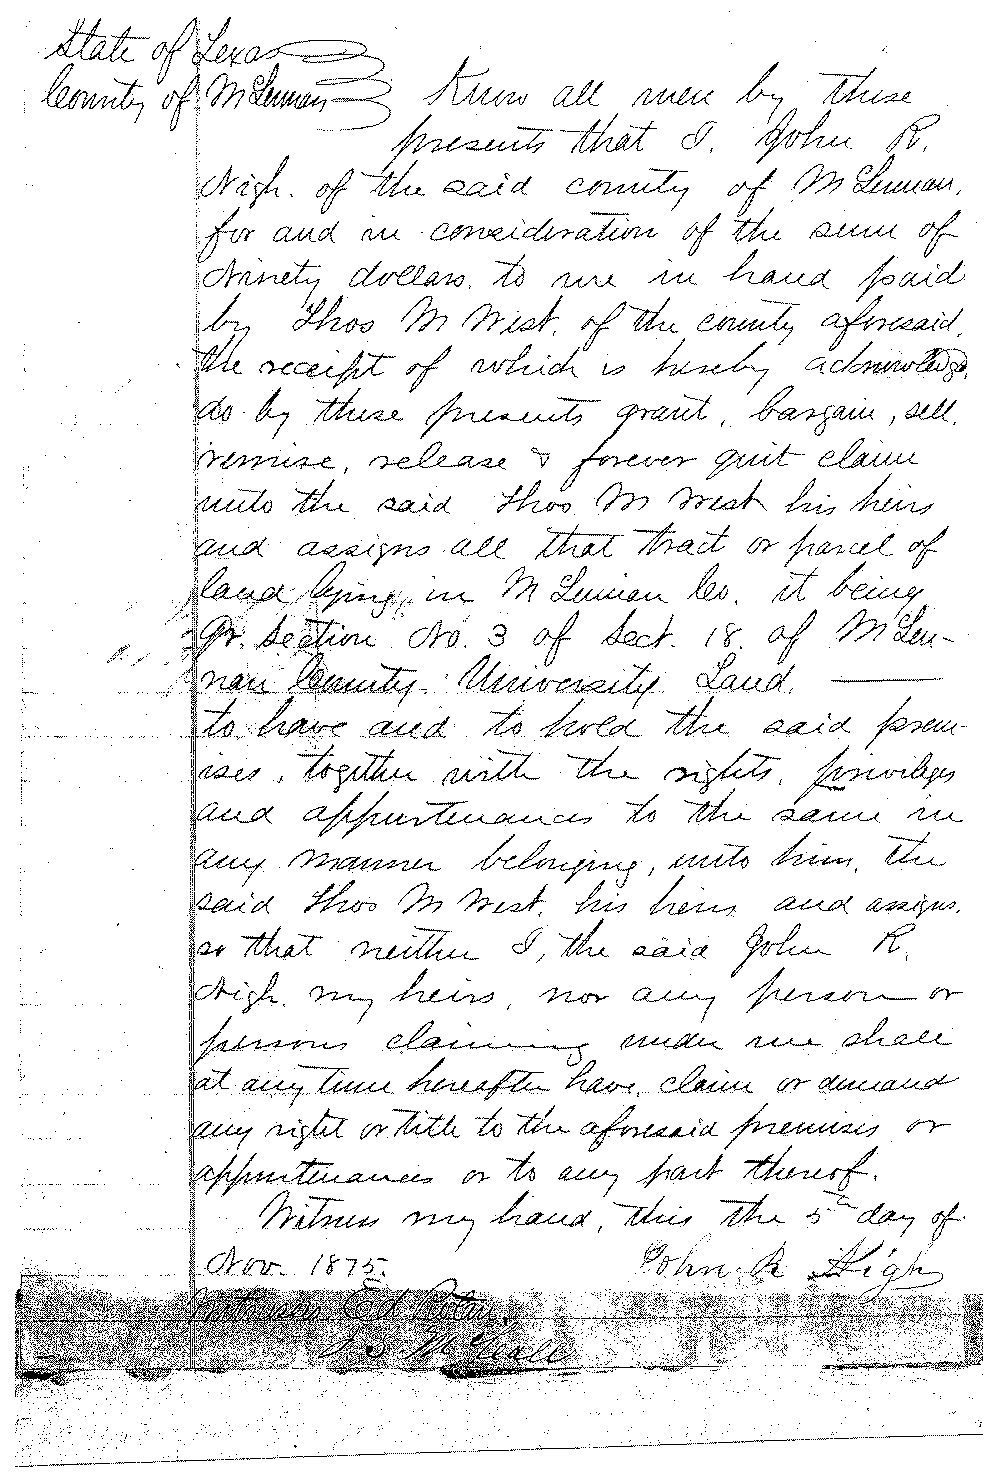 State of Texas
County of McLennan Know all men by these
presents that I. John R.
Nigh. of the said county of McLennan,
for and in consideration of the sum of
Ninety dollars. to me in hand paid
by Thos M West. of the county aforesaid.
the receipt of which is hereby acknowledged,
do by these presents grant, bargain, sell.
remise, release & forever quit claim
unto the said Thos M West his heirs
and assigns all that tract or parcel of
land lying in McLennan Co. it being
Qr. Section No. 3 of Sect. 18. of McLen-
nan County. University Land.
to have and to hold the said prem-
ises, together with the rights, privileges
and appurtenances to the same in
any manner belonging, unto him, the
said Thos M West. his heirs and assigns.
so that neither I, the said John R.
Nigh. my heirs, nor any person or
persons claiming under me shall
at any time hereafter have, claim or demand
any right or title to the aforesaid premises or
appurtenances or to any part thereof.
Witness my hand, this the 5th day of
Nov. 1875. John R Nigh
Ed